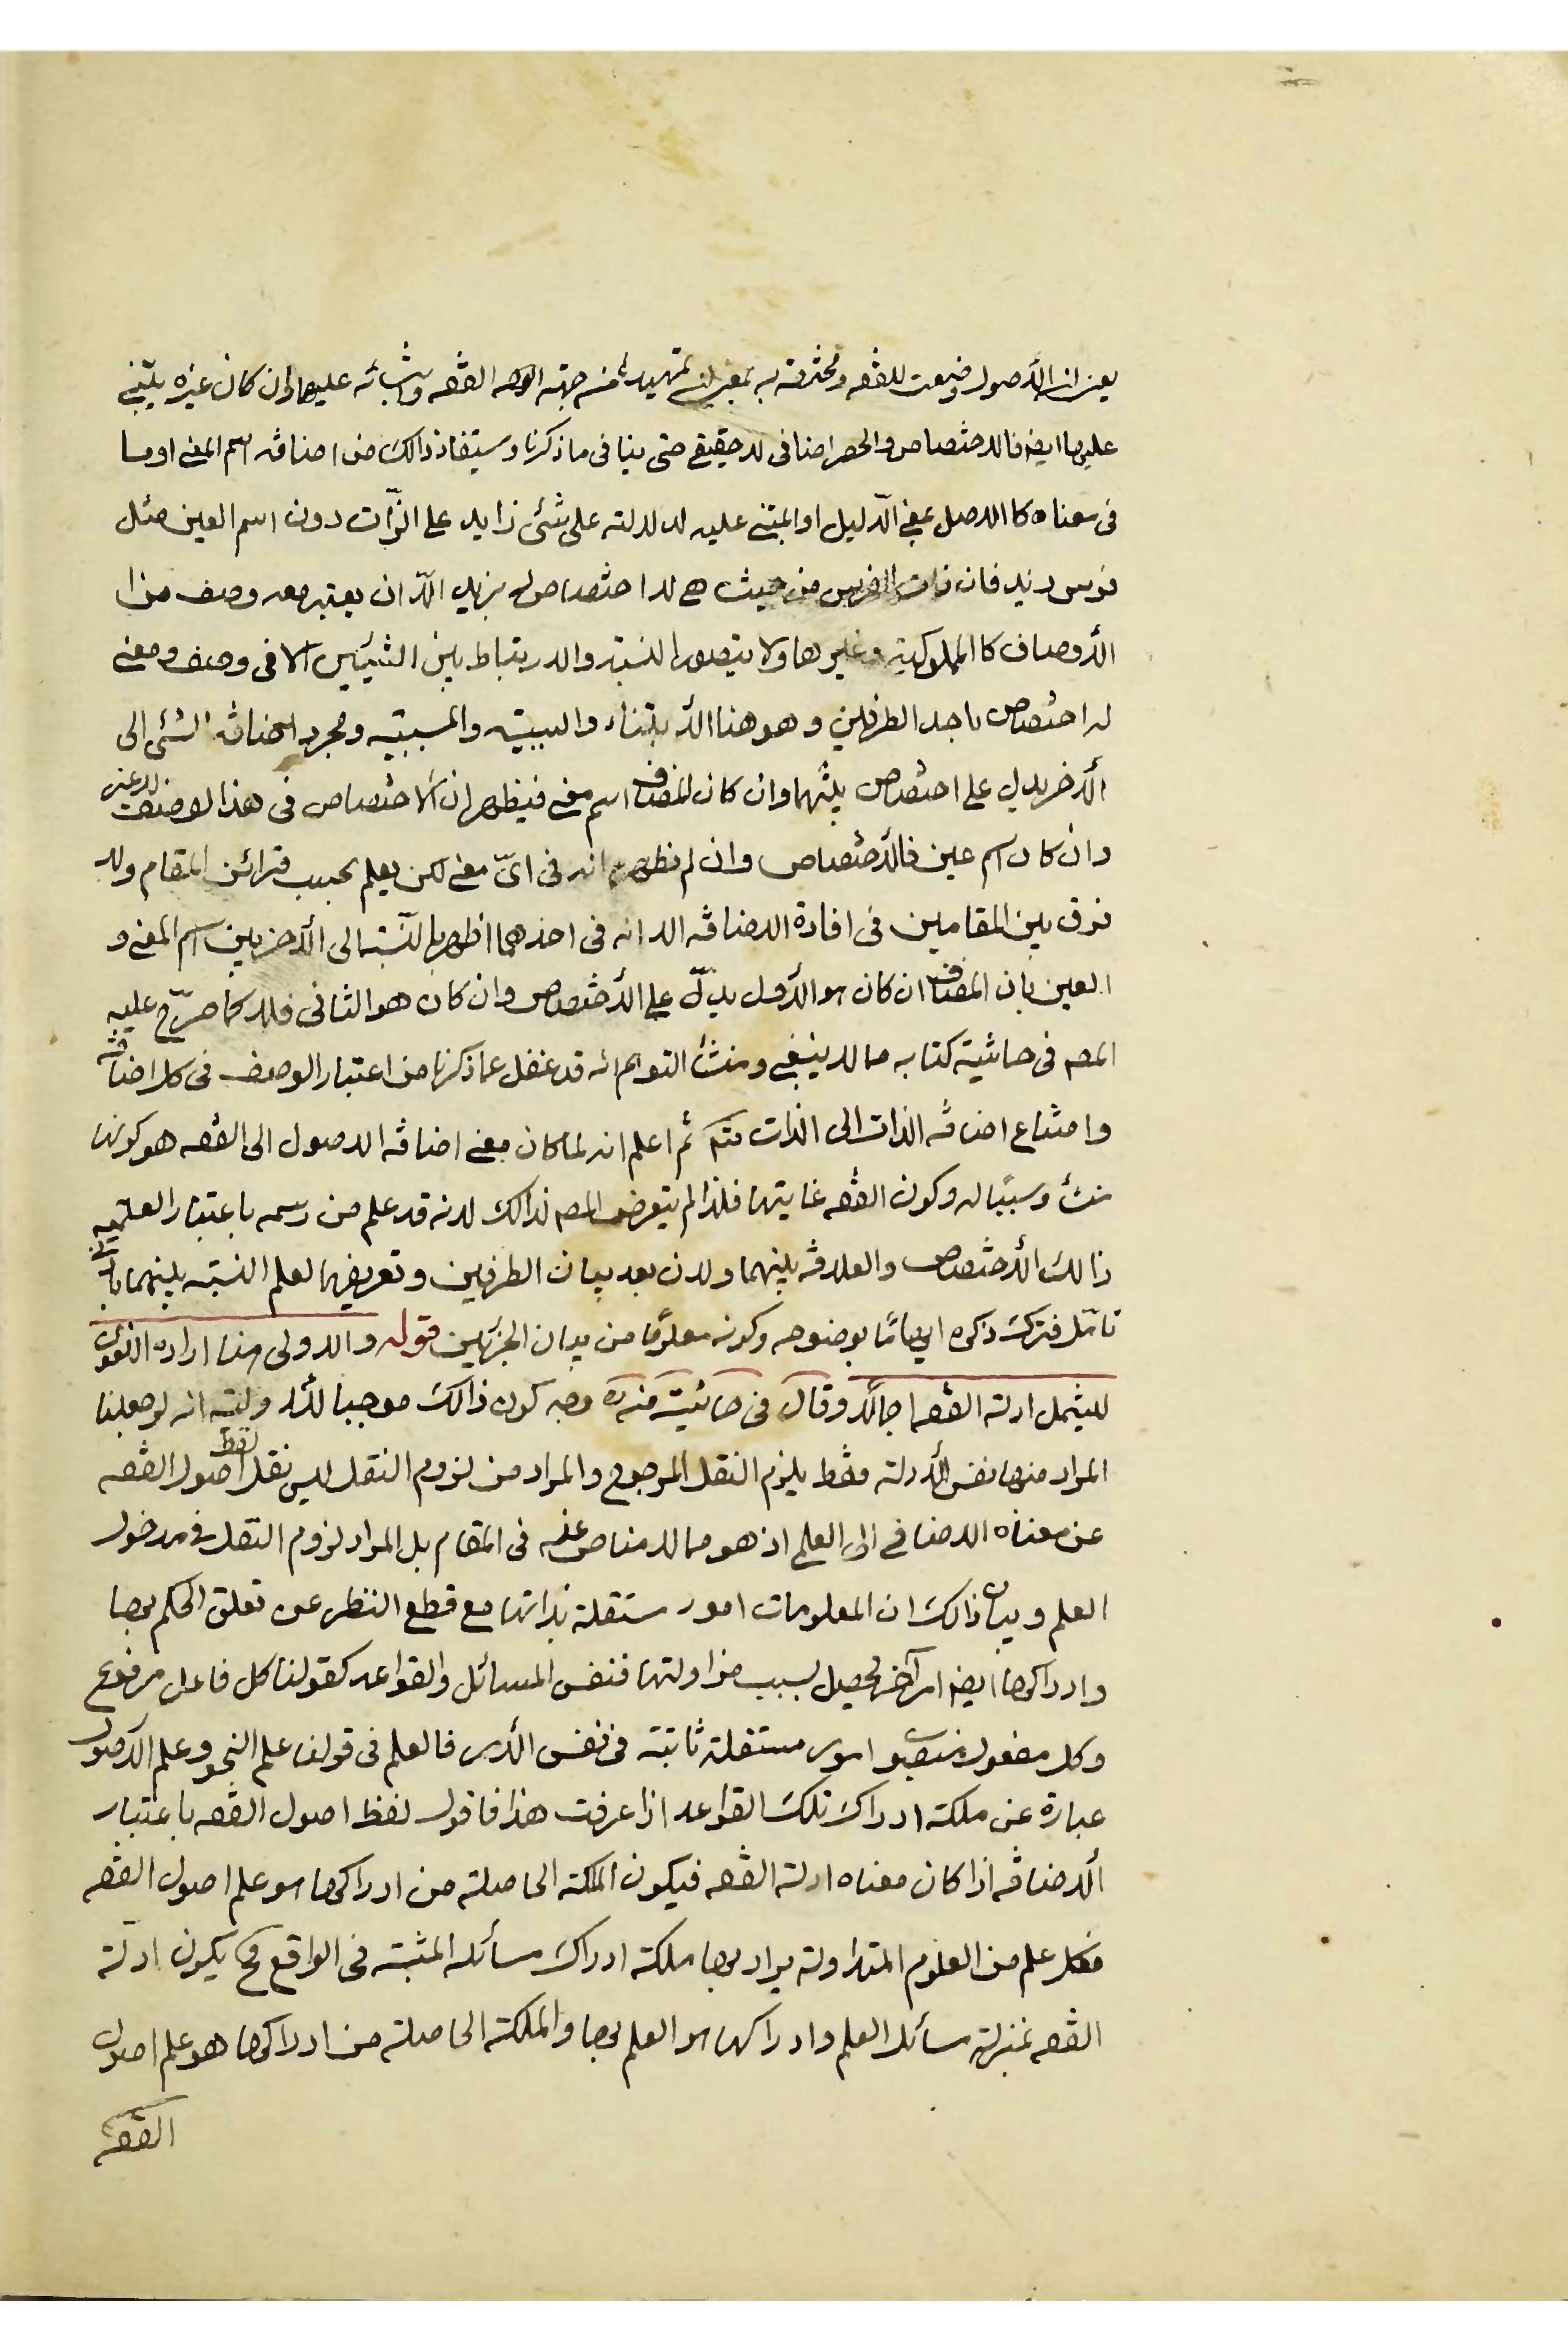 يعنى ان الأصول وضعت للفقه ومخترعة به بمعنى ان تمهيده من جهة الفقه وابتنائه عليها وان كان غيره يبتنى
عليها ايضا فالاختصاص والحصر اضافى لا حقيقى حتى ينافى ما ذكرنا وستفاد ذالك من اضافة اسم المعنى او ما
فى معناه كالاصل بمعنى الدّليل او المبتنى عليه لدلالته على شئ زايد على الذّات دون اسم العين مثل
فرس زيد فان ذات الفرس من حيث هى لا اختصاص له بزيد الّا ان يعتبر معه وصف من
الأوصاف كالمملوكية وغيرها ولا يتصور النسبة والارتباط بين الشيئين الا فى وصف ومعنى
له اختصاص باحد الطرفين وهو هنا الأبتناء والسببية والمسببية ومجرد اضافة الشئ الى
الأخر يدل على اختصاص بينهما وان كان المضاف اسم معنى فيظهر ان الاختصاص فى هذا الوصف لا غير
وان كان اسم عين فالأختصاص وان لم يظهر انه فى اىّ معنى لكن يعلم بحسب قرائن المقام ولا
فرق بين المقامين فى افادة الاضافة الا انه فى احدهما اظهر بالنسبة الى الأخر بين اسم المعنى و
العين بان المضاف ان كان هو الأول يدلّ على الأختصاص وان كان هو الثانى فلا كما صرّح عليه
المصه فى حاشية كتابه مما لا ينبغى ومنشأ التوهم انه قد غفل عما ذكرنا من اعتبار الوصف فى كل اضافة
وامتناع اضافة الذات الى الذات ثم اعلم انه لما كان معنى اضافة الاصول الى الفقه هو كونها
منشأ وسببًا له وكون الفقه غايتها فلذا لم يتعرض المصه لذالك لانه قد علم من رسمه باعتبار العلمية
ذالك الأختصاص والعلاقة بينهما ولان بعد بيان الطرفين وتعريفهما لعلم النسبة بينهما بادنى
تامّل فترك ذكره ايهامًا بوضوحه وكونه معلومًا من بيان الجزئين قوله والاولى هنا ارادة اللغوى
ليشمل ادلة الفقه اجمالًا وقال فى حاشية منه وجه كون ذالك موجبا للأولوية انه لو جعلنا
المراد منها نفس الأدلة فقط يلزم النقل المرجوح والمراد من لزوم النقل ليس نقل لفظ اصول الفقه
عن معناه الاضافى الى العلم اذ هو مما لا مناص عنه فى المقام بل المراد لزوم النقل فى مدخول
العلم وبيان ذالك ان المعلومات امور مستقلة بذاتها مع قطع النظر عن تعلق الحكم بها
وادراكها ايضا امر آخر يحصل بسبب مزاولتها فنفس المسائل والقواعد كقولنا كل فاعل مرفوع
وكل مفعول منصوب امور مستقلة ثابتة فى نفس الأمر فالعلم فى قولنا علم النحو وعلم الأصول
عبارة عن ملكة ادراك تلك القواعد اذا عرفت هذا فاقول لفظ اصول الفقه باعتبار
الأضافة اذا كان معناه ادلة الفقه فيكون الملكة الحاصلة من ادراكها هو علم اصول الفقه
فكل علم من العلوم المتداولة يراد بها ملكة ادراك مسائله المثبتة فى الواقع فح يكون ادلّة
الفقه بمنزلة مسائل العلم وادراكها هو العلم بها والملكة الحاصلة من ادراكها هو علم اصول
الفقه